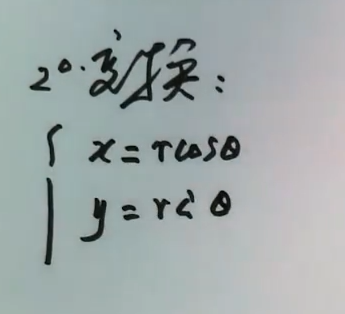 2°. 变换:
x = rcosθ
y = r θ